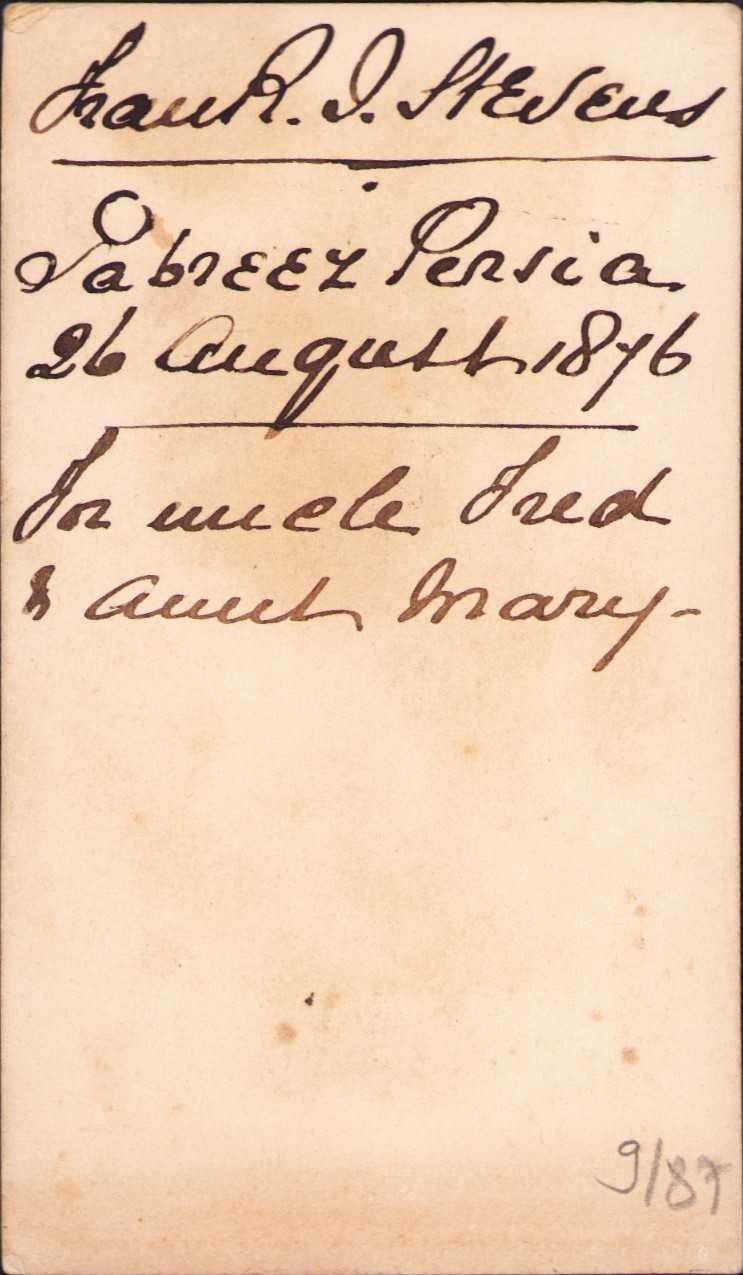 Frank. I. Stevens
Tabreez Persia.
26 August 1876
For uncle Fred
& aunt Mary -
9/87